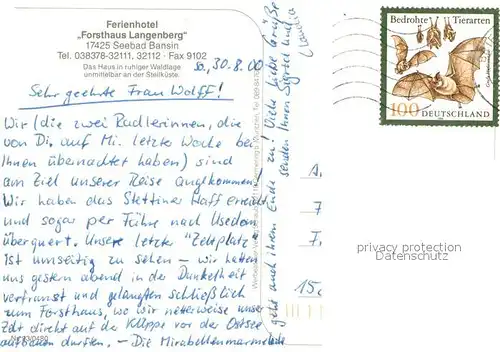 Ferienhotel
„Forsthaus Langenberg"
17425 Seebad Bansin
Tel. 038378-32111, 32112 · Fax 9102
Das Haus in ruhiger Waldlage
unmittelbar an der Steilküste
30.8.00
Sehr geehrte Frau Wolff!
Wir (die zwei Radlerinnen, die
von Di. auf Mi. letzte Woche bei
Ihnen übernachtet haben) sind
am Ziel unserer Reise angekommen!
Wir haben das Stettiner Haff erreicht
und sogar per Fähre nach Usedom
überquert. Unsere letzter "Zeltplatz"
ist umseitig zu sehen – wir hatten
uns gestern abend in der Dunkelheit
verfranst und gelangten schließlich
zum Forsthaus, wo wir netterweise unser
Zelt direkt auf der Klippe vor der Ostsee
aufbauen durften. – Die Mirabellenmarmelade
geht auch ihrem Ende zu! Viele liebe Grüße
senden Ihnen Sigrid und
Claudia
Bedrohte Tierarten
100 DEUTSCHLAND
privacy protection
Datenschutz